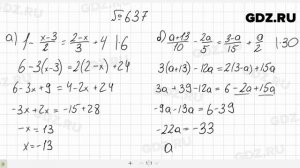 GDZ.RU
№637
а) 1 - x-3/2 = 2-x/3 + 4 |·6
б) a+13/10 - 2a/5 = 3-a/15 + a/2 |·30
6-3(x-3) = 2(2-x)+24
3(a+13)-12a = 2(3-a)+15a
6-3x+9 = 4-2x+24
3a+39-12a = 6-2a+15a
-3x+2x = -15+28
-9a-13a = 6-39
-x = 13
-22a = -33
x = -13
a
GDZ.RU